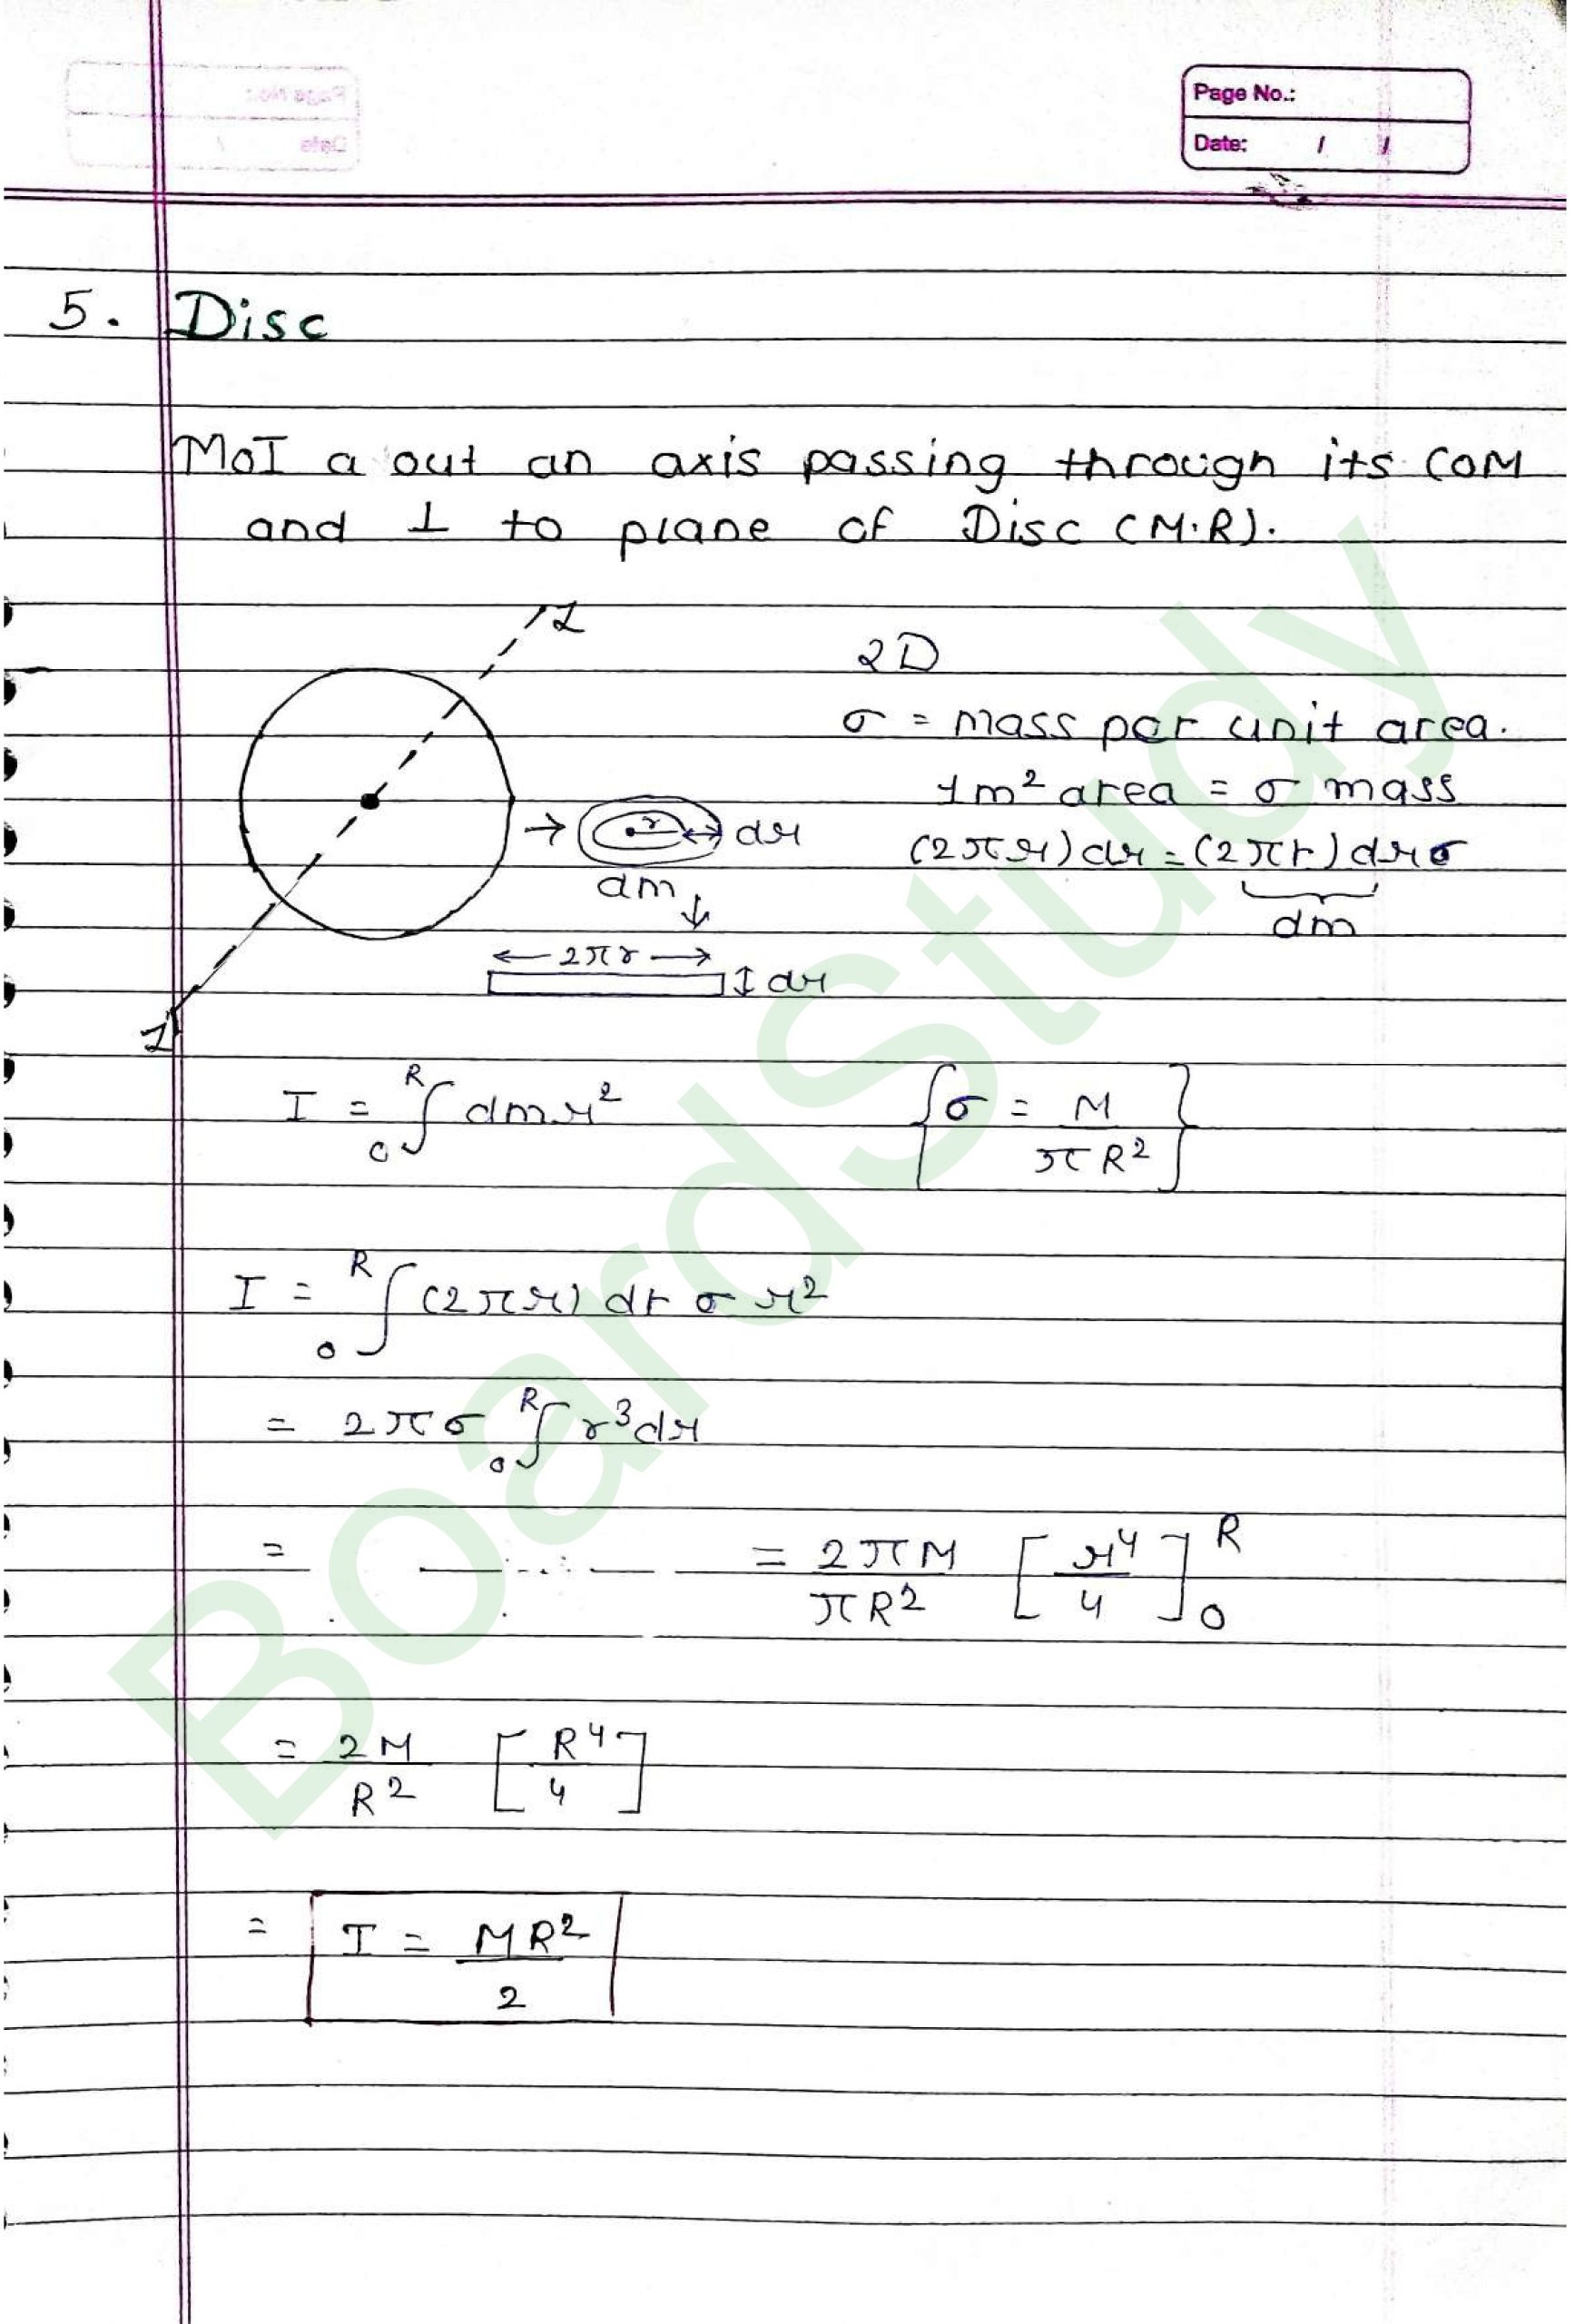 Page No.:
Date: / /
5. Disc
MoI a out an axis passing through its COM
and ⊥ to plane of Disc (M.R).
2D
σ = mass per unit area.
1m² area = σ mass
→ r dr
(2πr)dr = (2πr)drσ
dm
dm
← 2πr →
dr
I = ₀∫ᴿ dmr²
{σ = M/πR²}
I = ₀∫ᴿ (2πr) dr σ r²
= 2πσ ₀∫ᴿ r³dr
= = 2πM/πR² [r⁴/4]₀ᴿ
= 2M/R² [R⁴/4]
= I = MR²/2
BoardStudy